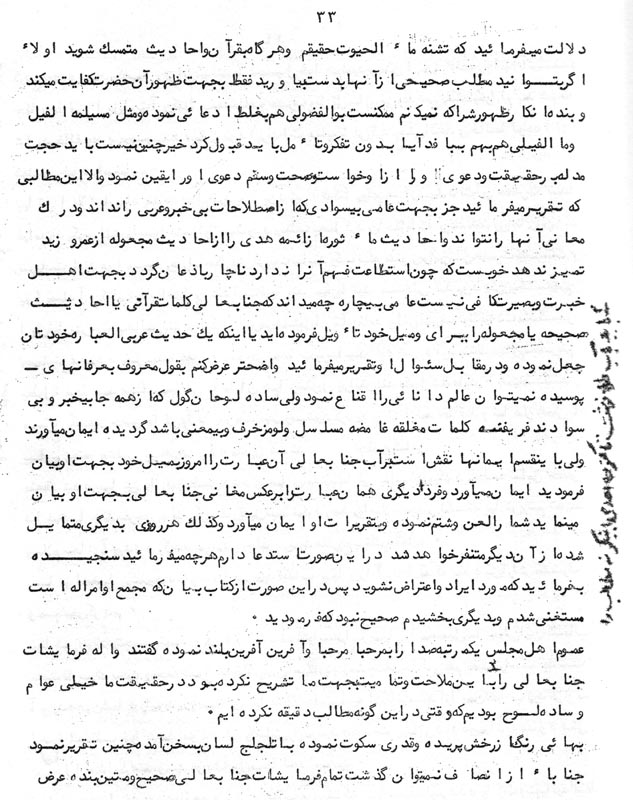 ۳۳
دلالت میفرمائید که تشنه ماء الحیوت حقیقم وهرگاه بقرآن واحادیث متمسك شوید اولاً
اگر بتوانید مطلب صحیحی از آنها بدست بیاورید فقط بجهت ظهور آن حضرت کفایت میکند
وبنده انکار ظهورش را که نمیکنم ممکنست بوالفضولی هم بغلط ادعائی نموده ومثل مسیلمه الفیل
وما الفیلی هم بهم ببافد آیا بدون تفکر وتاءمل باید قبول کرد خیر چنین نیست باید حجت
مدلل بر حقیقت ودعوی او را از او خواست وصحت وسقم دعوی او را یقین نمود والا این مطالبی
که تقریر میفرمائید جز بجهت عامی بیسوادی که از اصطلاحات بی خبر وعربی را نداند ودرك
معانی آنها را نتواند واحادیث ماءثوره از ائمه هدی را از احادیث مجعوله از عمرو زید
تمیز ندهد خوبست که چون استطاعت فهم آنرا ندارد ناچار باذعان گردد بجهت اهل
خبرت وبصیرت کافی نیست عامی بیچاره چه میداند که جنابعالی کلمات قرآنی یا احادیث
صحیحه یا مجعوله را برای ومیل خود تاءویل فرموده اید یا اینکه یك حدیث عربی العباره خودتان
جعل نموده ودر مقابل سئوال او تقریر میفرمائید واضحتر عرض کنم بقول معروف بعرفانهای
پوسیده نمیتوان عالم دانائی را اقناع نمود ولی ساده لوحان گول که از همه جا بیخبر وبی
سوادند فریفته کلمات مغلقه غامضه مسلسل ولو مزخرف وبیمعنی باشد گردیده ایمان میآورند
ولی باینقسم ایمانها نقش است بر آب جنابعالی آن عبارت را امروز بمیل خود بجهت او بیان
فرمودید ایمان میآورد وفردا دیگری همان عبارت را بر عکس معانی جنابعالی بجهت او بیان
مینماید شما را لعن وشتم نموده وبتقریرات او ایمان میآورد وکذلك هر روزی بدیگری متمایل
شده از آن دیگر متنفر خواهد شد در اینصورت استدعا دارم هر چه میفرمائید سنجیده
بفرمائید که مورد ایراد واعتراض نشوید پس در این صورت از کتاب بیان که مجمع اوامر اله است
مستغنی شدم وبدیگری بخشیدم صحیح نبود که فرمودید .
عموم اهل مجلس یکمرتبه صدا را بمرحبا مرحبا وآفرین آفرین بلند نموده گفتند واله فرمایشات
جنابعالی را باین ملاحت وتمامیت بجهت ما تشریح نکرده بودد رحقیقت ما خیلی عوام
وساده لوح بودیم که وقتی در این گونه مطالب دقیقه نکرده ایم .
بهائی رنگ از رخش پریده وقدری سکوت نموده با تلجلج لسان بسخن آمده چنین تقریر نمود
جنابا از انصاف نمیتوان گذشت تمام فرمایشات جنابعالی صحیح ومتین بنده عرض